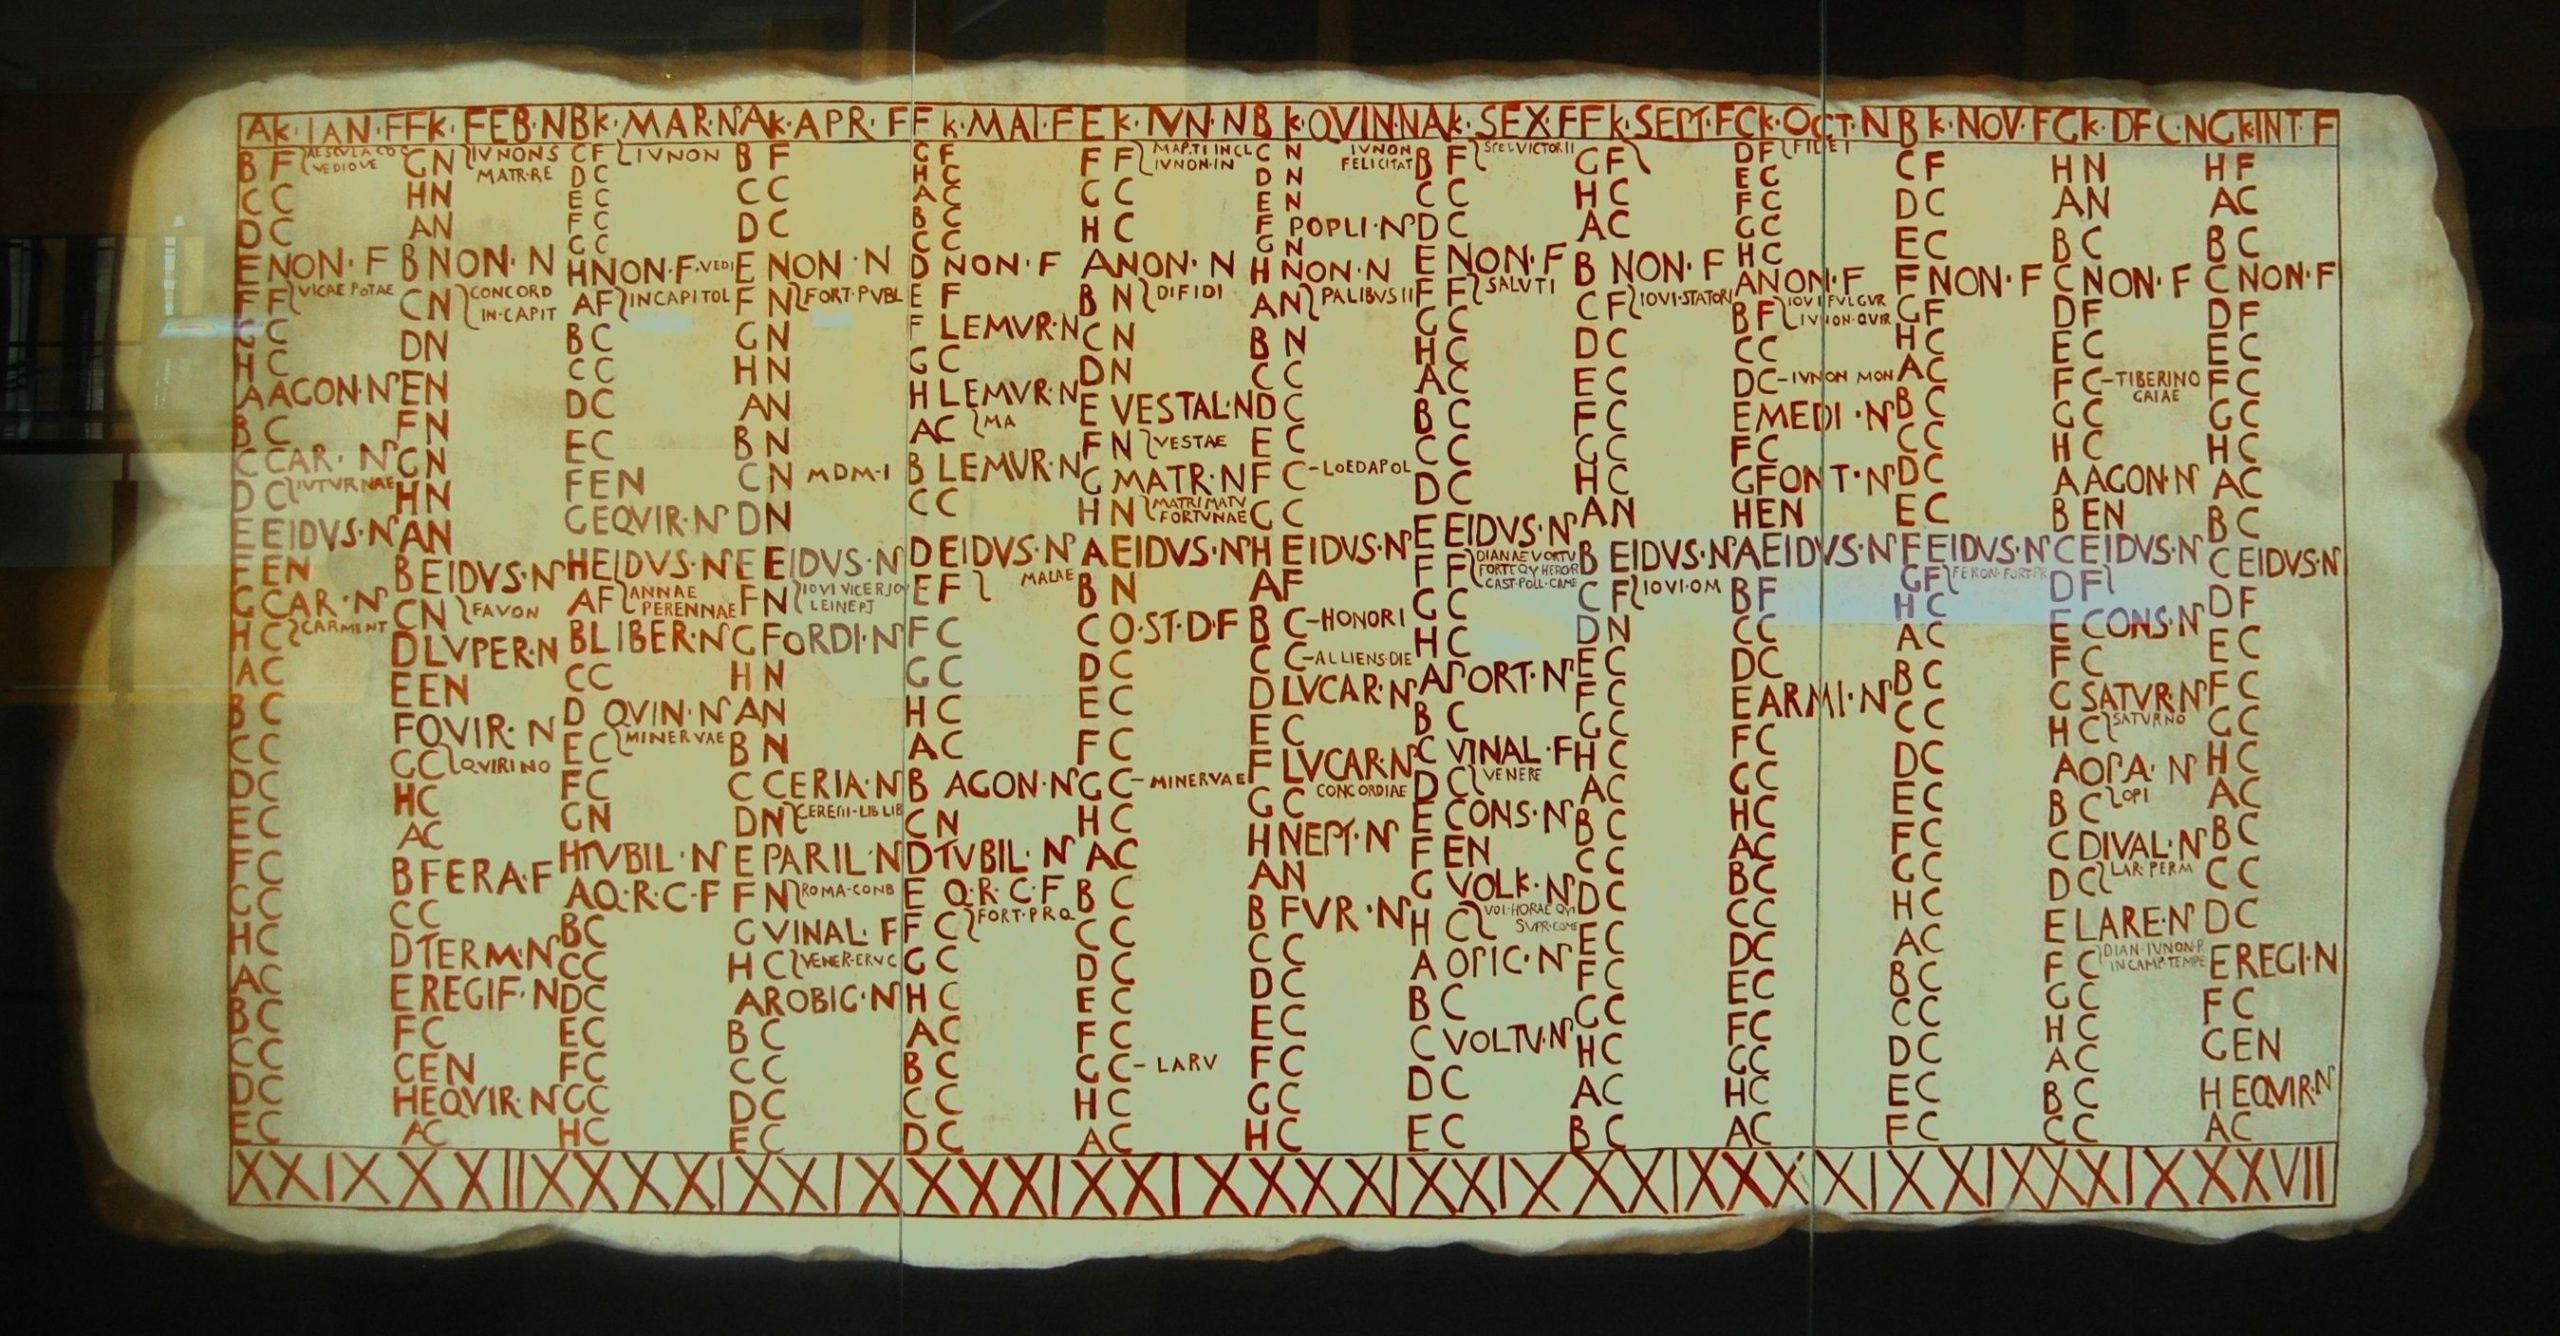 AK·IAN·F FK·FEB·N BK·MAR·N AK·APR·F FK·MAI·F EK·IVN·N BK·QVIN·N AK·SEX·F FK·SEPT·F CK·OCT·N BK·NOV·F GK·DEC·N GK·INT·F
B F
VEDIOVE
C C
D C
E NON·F
F F VICAE POTAE
G C
H C
A AGON·N
B C
C CAR·N
D C IVTVRNAE
E EIDVS·N
F EN
G CAR·N
H C CARMENT
A C
B C
C C
D C
E C
F C
G C
H C
A C
B C
C C
D C
E C
G N IVNONS
MATR·RE
H N
A N
B NON·N
C N CONCORD
IN·CAPIT
D N
E N
F N
G N
H N
A N
B EIDVS·N
C N FAVON
D LVPER·N
E EN
F QVIR·N
G C QVIRINO
H C
A C
B FERA·F
C C
D TERM·N
E REGIF·N
F C
G EN
H EQVIR·N
A C
C F IVNON
D C
E C
F C
G C
H NON·F·VEDI
A F IN CAPITOL
B C
C C
D C
E C
F EN
G EQVIR·N
H EIDVS·N
A F ANNAE
PERENNAE
B LIBER·N
C C
D QVIN·N
E C MINERVAE
F C
G N
H TVBIL·N
A Q·R·C·F
B C
C C
D C
E C
F C
G C
H C
B F
C C
D C
E NON·N
F N FORT·PVBL
G N
H N
A N
B N
C N MDM·I
D N
E EIDVS·N
F N IOVI VICERIO
LEINEPI
G FORDI·N
H N
A N
B N
C CERIA·N
D N
E PARIL·N
F N ROMA·CONB
G VINAL·F
H C VENER·ERVC
A ROBIG·N
B C
C C
D C
E C
G F
H C
A C
B C
C C
D NON·F
E F
F LEMVR·N
G C
H LEMVR·N
A C MA
B LEMVR·N
C C
D EIDVS·N
E F MALAE
F C
G C
H C
A C
B AGON·N
C N
D TVBIL·N
E Q·R·C·F
F C FORT·PRQ
G C
H C
A C
B C
C C
D C
F F MAP·TI INCL
IVNON·IN
G C
H C
A NON·N
B N DIFIDI
C N
D N
E VESTAL·N
F N VESTAE
G MATR·N
H N MATRI MATV
FORTVNAE
A EIDVS·N
B N
C Q·ST·D·F
D C
E C
F C
G C-MINERVAE
H C
A C
B C
C C
D C
E C
F C
G C-LARV
H C
A C
C N IVNON
FELICITAT
D N
E N
F POPLI·N
G N
H NON·N
A N PALIBVS II
B N
C C
D C
E C
F C-LOEDAPOL
G C
H EIDVS·N
A F
B C-HONORI
C C-ALLIENS·DIE
D LVCAR·N
E C
F LVCAR·N
G C CONCORDIAE
H NEPT·N
A N
B FVR·N
C C
D C
E C
F C
G C
H C
B F
C C
D C
E NON·F
F F SALVTI
G C
H C
A C
B C
C C
D C
E EIDVS·N
F F DIANAE VORTV
FORTEQV HERCR
CAST·POLL·CAME
G C
H C
A PORT·N
B C
C VINAL·F
D C VENERE
E CONS·N
F EN
G VOLK·N
H C VOL·HORAE QVI
SVPR·COME
A OPIC·N
B C
C VOLTV·N
D C
E C
G F
H C
A C
B NON·F
C F IOVI·STATORI
D C
E C
F C
G C
H C
A N
B EIDVS·N
C F IOVI·OM
D N
E C
F C
G C
H C
A C
B C
C C
D C
E C
F C
G C
H C
A C
B C
D F
E C
F C
G C
H C
A NON·F
B F IOVI FVLGVR
IVNON·QVIR
C C
D C-IVNON MON
E MEDI·N
F C
G FONT·N
H EN
A EIDVS·N
B F
C C
D C
E ARMI·N
F C
G C
H C
A C
B C
C C
D C
E C
F C
G C
H C
A C
C F
D C
E C
F NON·F
G F
H C
A C
B C
C C
D C
E C
F EIDVS·N
G F FERON·FORT·PR
H C
A C
B C
C C
D C
E C
F C
G C
H C
A C
B C
C C
D C
E C
F C
H N
A N
B C
C NON·F
D F
E C
F C-TIBERINO
GAIAE
G C
H C
A AGON·N
B EN
C EIDVS·N
D F
E CONS·N
F C
G SATVR·N
H C SATVRNO
A OPA·N
B C OPI
C DIVAL·N
D C LAR·PERM
E LARE·N
F C DIAN·IVNON·R
IN CAMP·TEMPE
G C
H C
A C
B C
C C
H F
A C
B C
C NON·F
D F
E C
F C
G C
H C
A C
B C
C EIDVS·N
D F
E C
F C
G C
H C
A C
B C
C C
D C
E REGI·N
F C
G EN
H EQVIR·N
A C
XXIX XXIIX XXXI XXIX XXXI XXIX XXXI XXIX XXIX XXXI XXIX XXIX XXVII